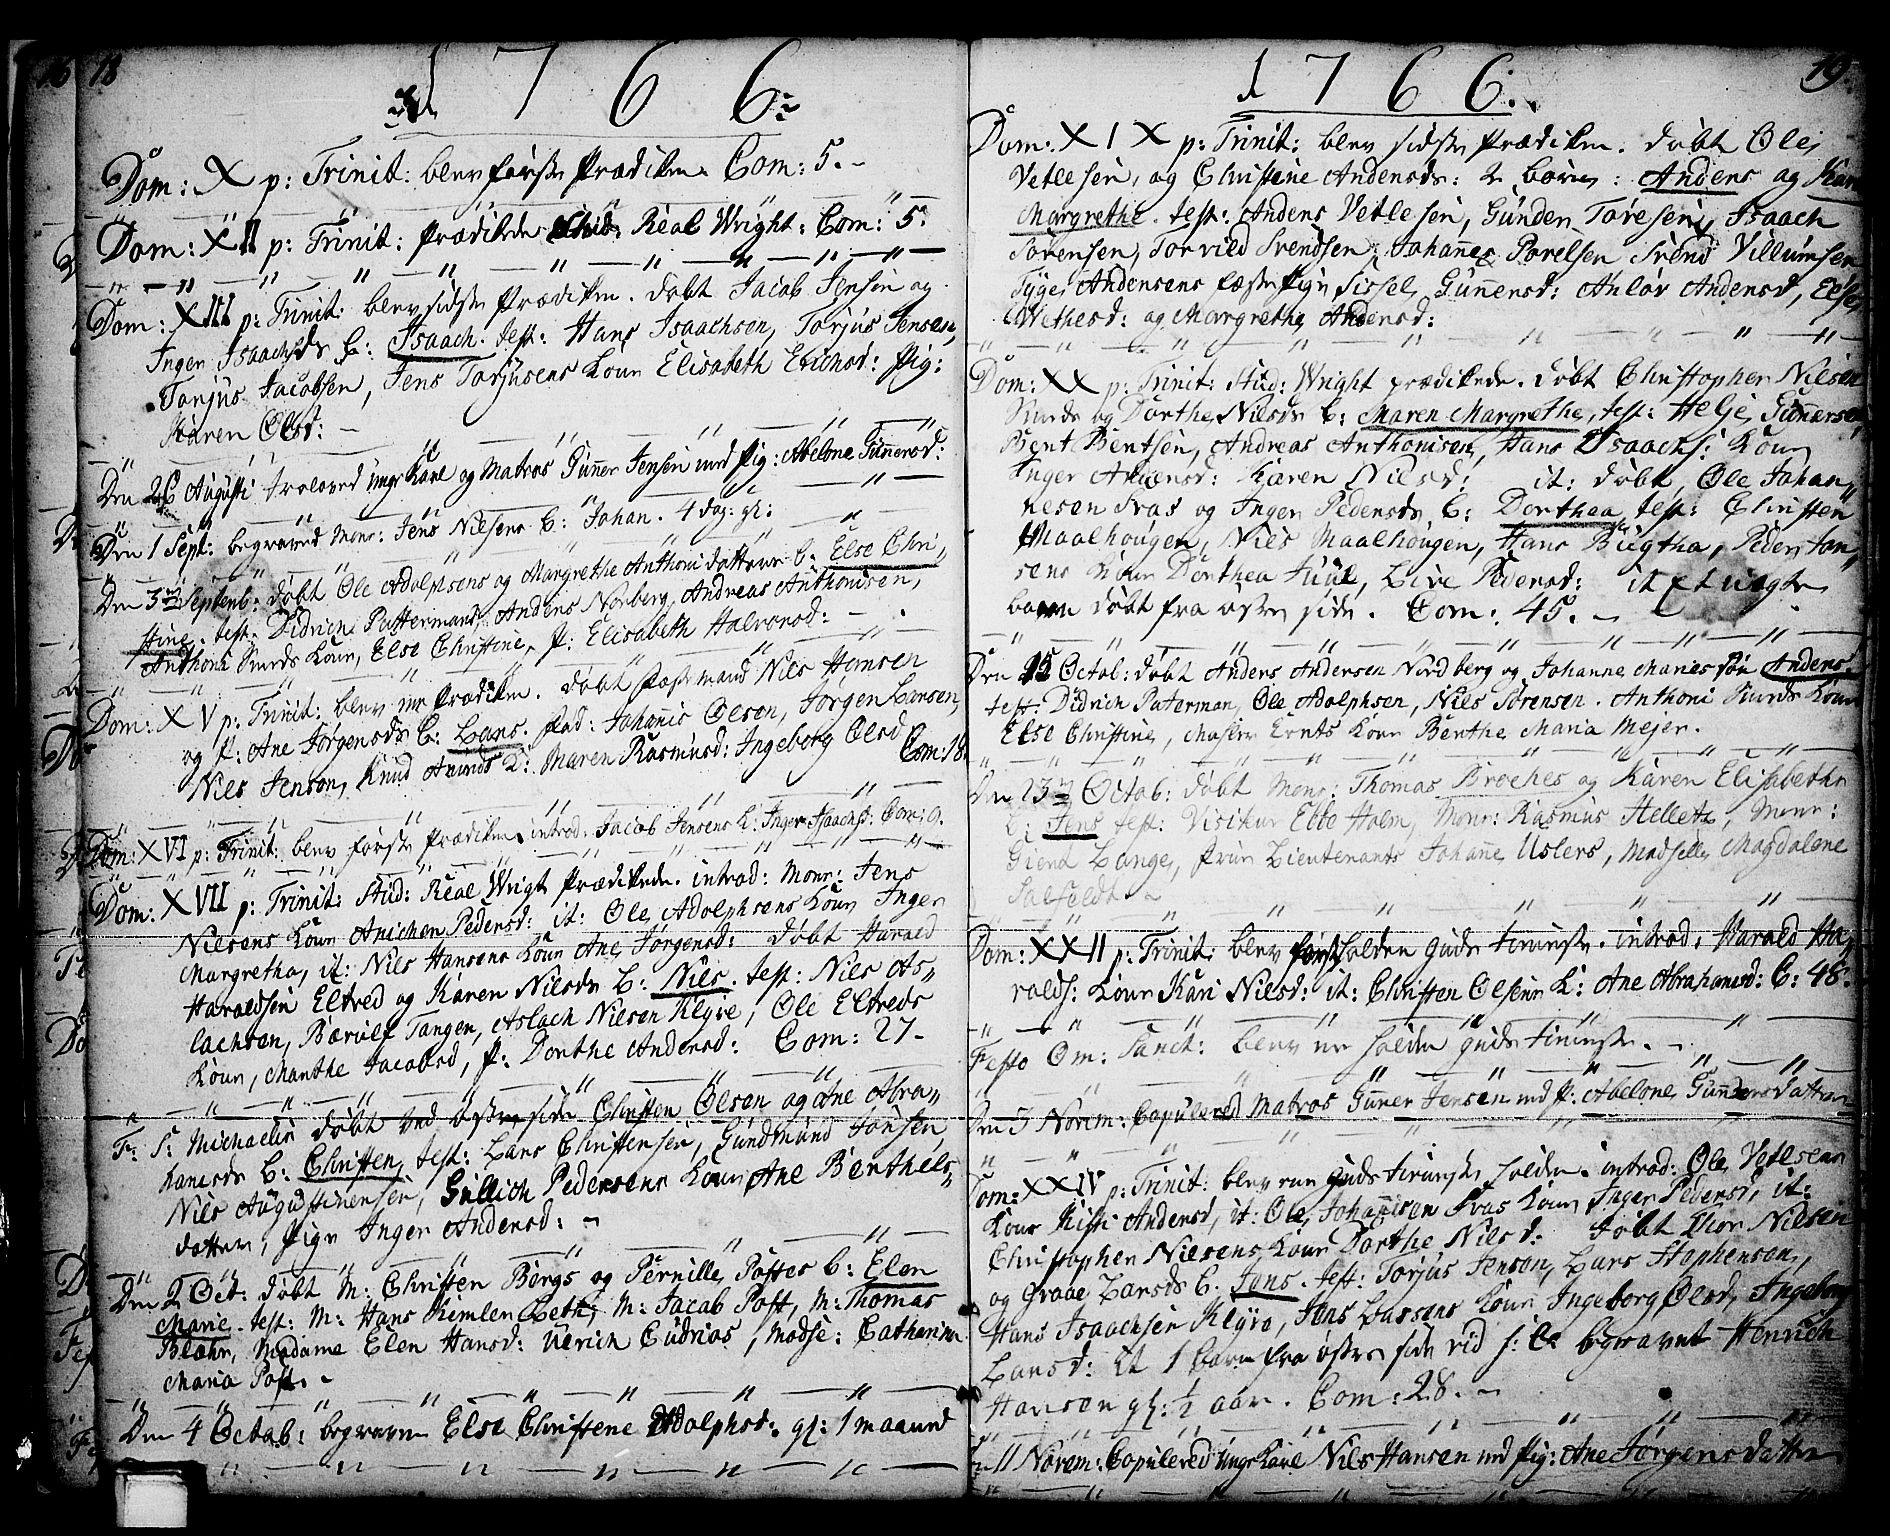 18
1 7 6 6
Dom: X p: Trinit: blev første Prædiken. Com: 5.
Dom: XII p: Trinit: Prædikede Stud: Real Wright: Com: 5
Dom: XIII p: Trinit: blev sidste Prædiken. døbt Jacob Jensen og
Inger Isaachsds b: Isaach. test: Hans Isaachsen, Torjus Jensen,
Torjus Jacobsen, Jens Torjusens Koun Elisabeth Erichsd: Pig:
Karen Olsd:
Den 26 Augusti troloved unge Karl og Matros Guner Jensen med Pig: Abelone Gunersd:
Den 1 Sept: begraved Monr: Jens Nielsens b: Johan. 4 dag: gl:
Den 3die Septenb: døbt Ole Adolphsens og Margrethe Anthoni datters b: Else Chri-
stine. test: Didrich Puttermand, Anders Norberg, Andreas Anthonisen,
Anthoni Knuds Koun, Else Christine, P: Elisabeth Halvorsd:
Dom: XV p: Trinit: blev en Prædiken. døbt Postmand Nils Hansen
og P: Ane Jørgensds b: Lars. fad: Johanis Olsen, Jørgen Larsen,
Nils Jensen, Knud K: Maren Rasmusd: Ingeborg Olsd Com: 18
Dom: XVI p: Trinit: blev første Prædiken, introd: Jacob Jensens K: Inger Isaachs: Com: 9.
Dom: XVII p: Trinit: Stud: Real Wrigt Prædikede. introd: Monr: Jens
Nilsens Koun Anichen Pedersd: it: Ole Adolphsens Koun Inger
Margretha, it: Nils Hansens Koun Ane Jørgensd: døbt Harald
Haraldsen Eltred og Karen Nilsds b: Nils. test: Nils As-
lachsen, Tangen, Aslach Nilsen Klyve, Ole Eltreds
Koun, Marthe Jacobsd, P: Dorthe Andersd: Com: 27
F: S: Michaelis døbt ved østre side Christen Olsen og Ane Abra-
hamsds b: Christen, test: Lars Christensen, Gundmund Jansen
Nils Augustinensen, Gullich Pedersens Koun Ane Berthels-
datter, Pige Inger Andersd:
Den 2 Oct: døbt M: Christen Bergs og Pernille Postes b: Elen
Marie. test: M: Hans Kemlen Leth, M: Jacob Post, M: Thomas
Blæhr, Madame Elen Hansd: Ulrich Cudrias, Madse: Catharina
Maria Post.
Den 4 Octob: begraven Else Christene Adolphsd: gl: 1 maaned
19
1 7 6 6
Dom: XIX p: Trinit: blev sidste Prædiken. døbt Ole
Vetlesen, og Christine Andersds: 2 børn: Anders og Kar
Margrethe. test: Anders Vetlesen, Gunder Toresen, Isaach
Sørensen, Torvild Svendsen, Johannes Porelsen Svend Villumsen
Tyge Andersens fæste Pige Sissel Gunersd: Anlov Andersd, Else
Wethesd: og Margrethe Andersd:
Dom: XX p: Trinit: Stud: Wright prædikede. døbt Christopher Nilsen
og Dorthe Nilsds b: Maren Margrethe, test: Helje Gunersen,
Bent Bentsen, Andreas Anthonisen, Hans Isaachs: Koun
Inger Andersd: Karen Nilsd: it: døbt, Ole Johan-
nesen Fras og Inger Pedersds b: Dorthea test: Christen
Maalhougen, Nils Maalhougen, Hans Bugtha, Peder Jan-
sens Koun Dorthea Juul, Live Pedersd: it Et uægte
barn døbt fra østre side. Com: 45.
Den 15 Octob: døbt Anders Andersen Nordberg og Johanne Maries søn Anders.
test: Didrich Puterman, Ole Adolphsen, Nils Sørensen. Anthoni Knuds Koun
Else Christine, Ernts Koun Berthe Maria Mejer.
Den 23de Octob: døbt Monr: Thomas Broches og Karen Elisabeths
b: Jens test: Visiteur Ebbe Holm, Monr: Rasmus Helletz, Monr:
Giert Lange, fruu Lieutenants Johanne Uslers, Madselle Magdalene
Salfeldt.
Dom: XXII p: Trinit: blev først holden guds tieniste. introd: Harald Ha-
ralds: Koun Kari Nilsd: it: Christen Olsens K: Ane Abrahamsd: C: 48.
Festo Om: Sanct: blev en holden guds tieniste.
Den 3 Novem: Copulered Matros Guner Jensen med P: Abelone Gunersdatter
Dom: XXIV p: Trinit: blev een guds tieniste holden. introd: Ole Vetlsens
Koun Kisti Andersd, it: Ole Johannisen Fras Koun Inger Pedersd, it:
Christopher Nielsens Koun Dorthe Nilsd: døbt Thor Nilsen
og Graae Larsds b: Jens. test: Torjus Jenson, Lars Stephenson,
Hans Isaachsen Klyve, Jens Lassens Koun Ingeborg Olsd, Ingeborg
Larsd: Et 1 barn fra østre side ved s: C: begravet Henrich
Hansen gl: ½ aar. Com: 28.
11 Novem: Copulered unge Karl Nils Hansen med Pig: Ane Jørgensdatter